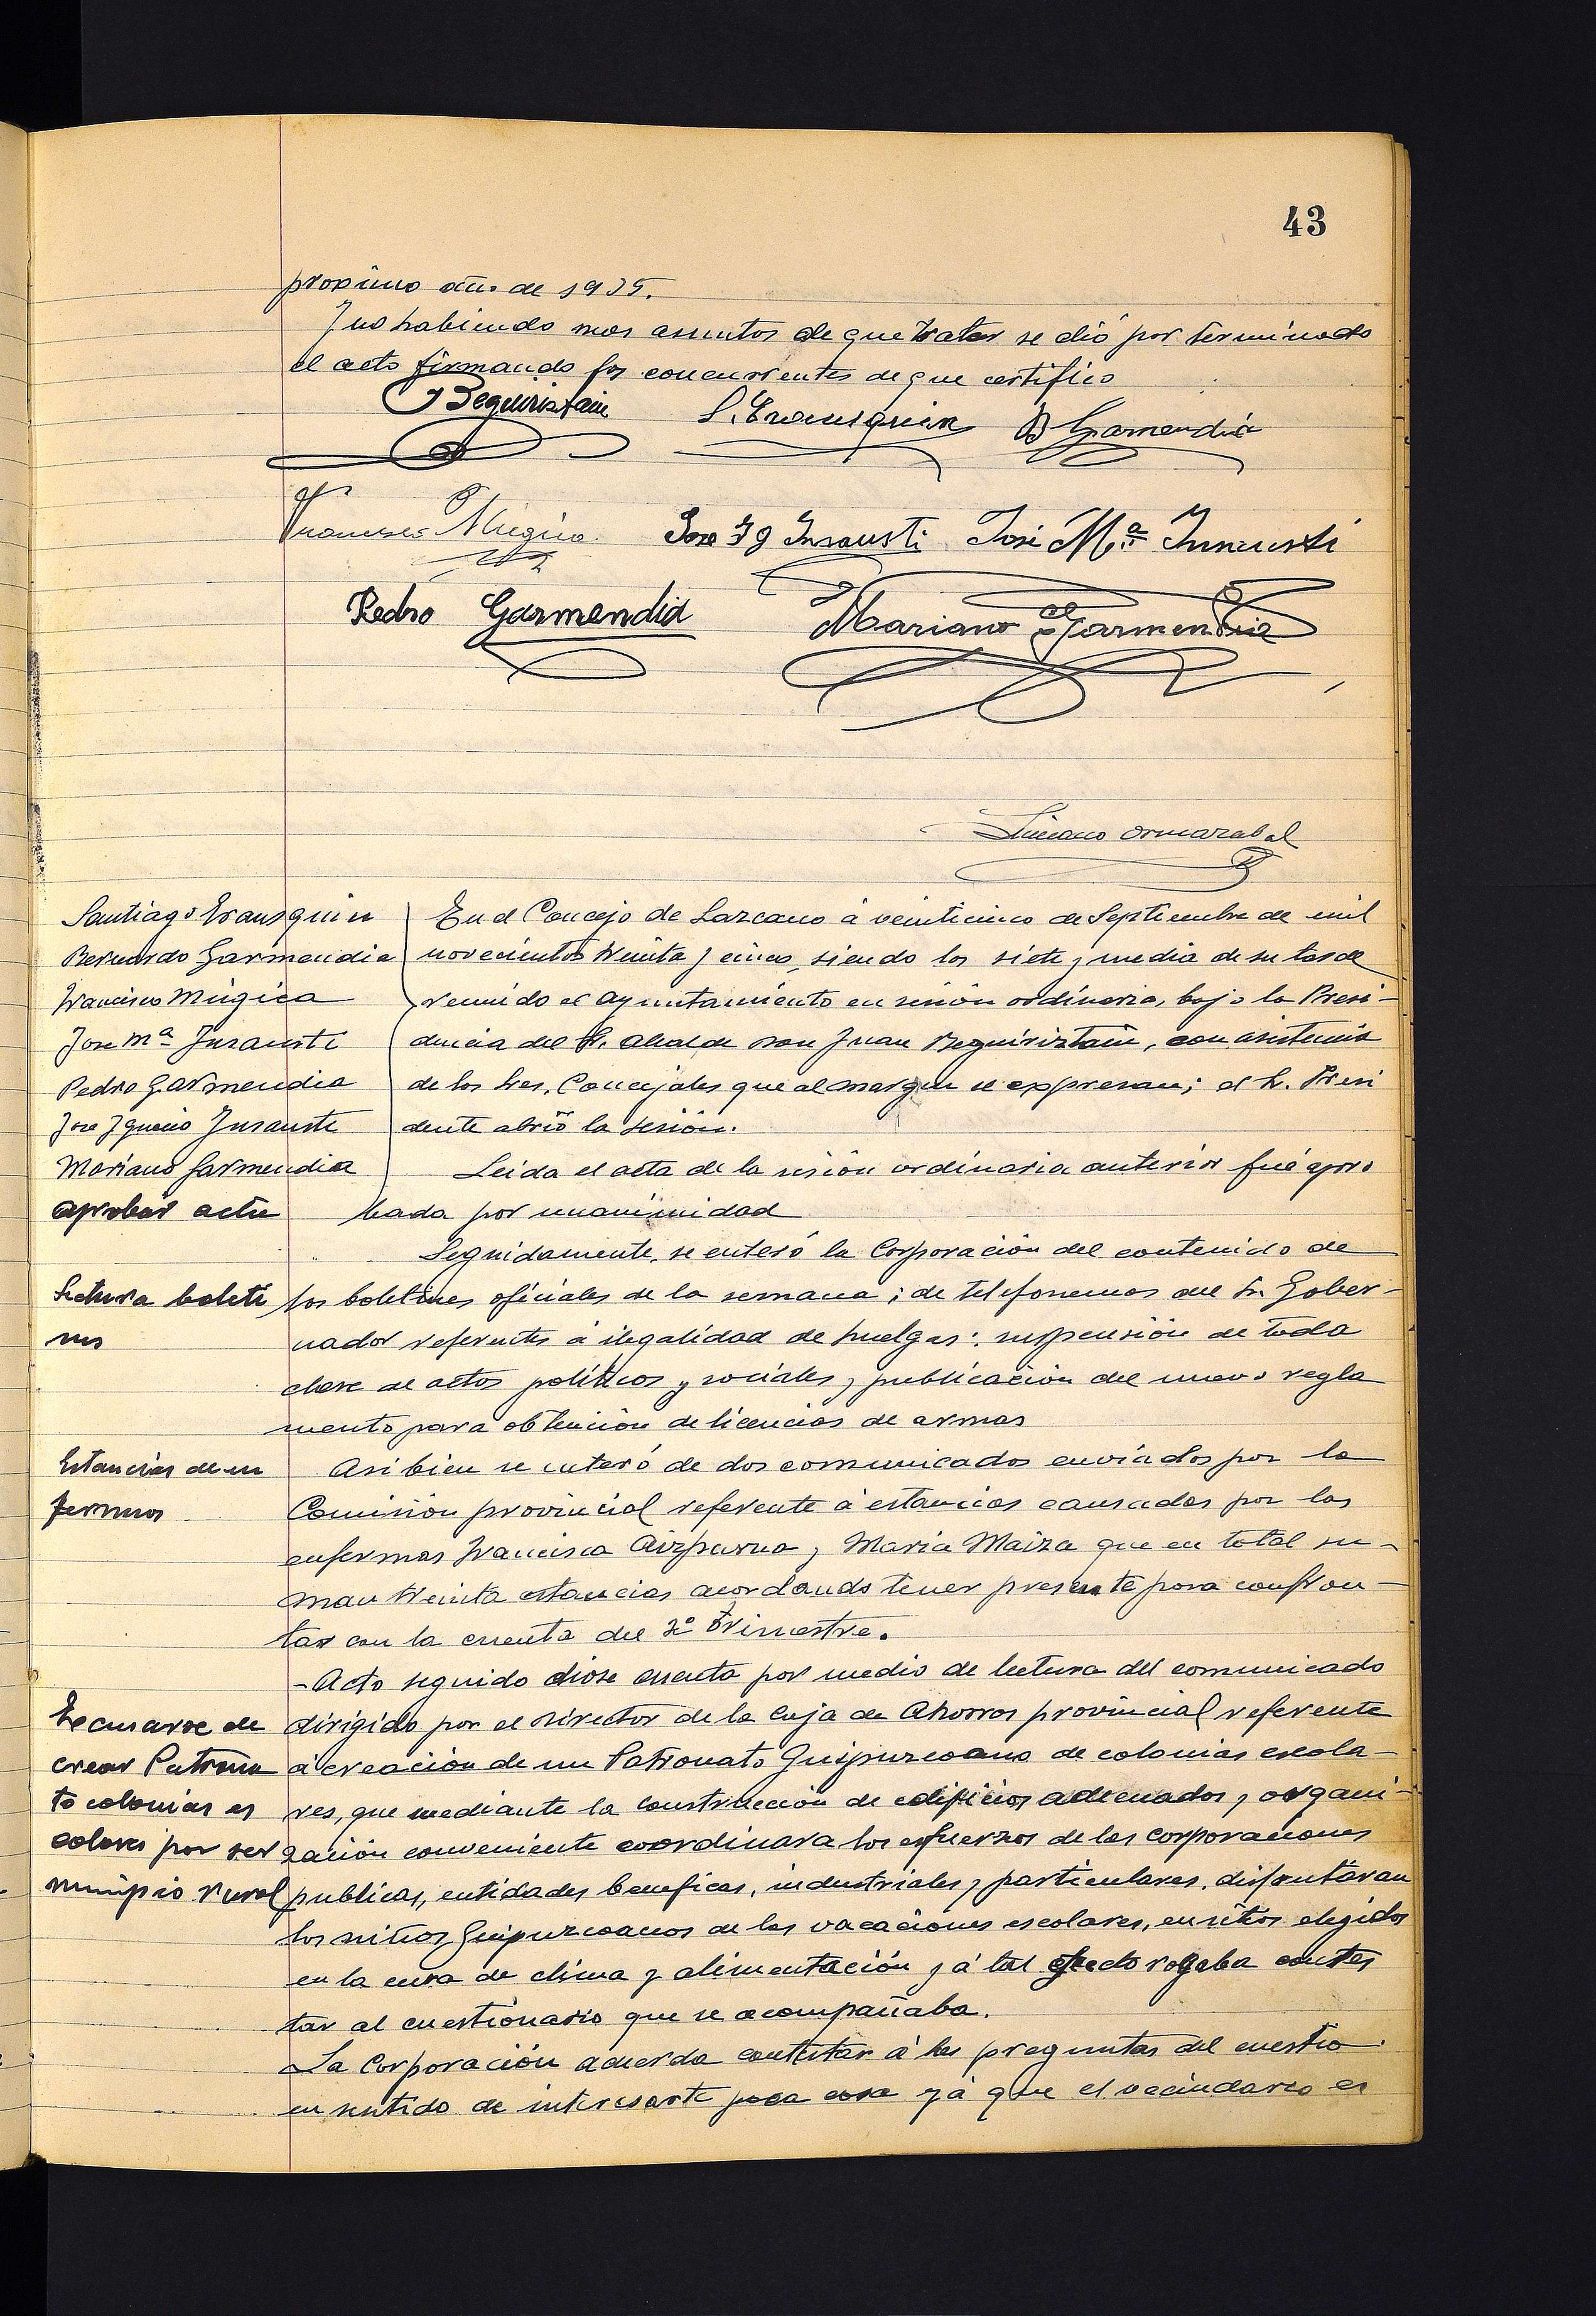 43
proximo año de 1935.
Y no habiendo mas asuntos de que tratar se dió por terminado
el acto firmando los concurrentes de que certifico
J Beguiristain S. Erausquin B Garmendia
Francisco Múgica Jose Ig Insausti José Mª Insausti
Pedro Garmendia Mariano Garmendia
Luciano Ormazabal
Santiago Erausquin
Bernardo Garmendia
Francisco Múgica
Jose Mª Insausti
Pedro Garmendia
Jose Ignacio Insausti
Mariano Garmendia
aprobar acta
En el Concejo de Lazcano á veinticinco de Septiembre de mil
novecientos treinta y cinco, siendo las siete y media de su tarde
reunido el Ayuntamiento en sesión ordinaria, bajo la Presi-
dencia del Sr. Alcalde Don Juan Beguiristain, con asistencia
de los Sres. Concejales que al margen se expresan; el Sr. Presi
dente abrió la sesión.
Leida el acta de la sesión ordinaria anterior fué apro
bada por unanimidad
Seguidamente, se enteró la Corporación del contenido de
Lectura boleti
nes
los boletines oficiales de la semana; de telefonemas del Sr. Gober-
nador referentes á ilegalidad de huelgas: suspensión de toda
clase de actos políticos y sociales y publicación del nuevo regla
mento para obtención de licencias de armas
Estancias de en
fermos
Asi bien se enteró de dos comunicados enviados por la
Comisión provincial referente á estancias causadas por las
enfermas Francisca Aizpurua y Maria Maiza que en total su-
man treinta estancias acordando tener presente para confron-
tar con la cuenta del trimestre.
- Acto seguido diose cuenta por medio de lectura del comunicado
Escusarse de
crear Patrona
to colonias es
colares por ser
municipio rural
dirigido por el Director de la Caja de Ahorros provincial referente
á creación de un Patronato Guipuzcoano de colonias escola-
res, que mediante la construcción de edificios adecuados y organi-
zación conveniente coordinara los esfuerzos de las corporaciones
publicas, entidades beneficas, industriales y particulares, disfrutaran
los niños Guipuzcoanos de las vacaciones escolares, en sitios elegidos
en la cura de clima y alimentación y á tal efecto rogaba contes
tar al cuestionario que se acompañaba.
La Corporación acuerda contestar á las preguntas del cuestio
en sentido de interesarte poca cosa yá que el vecindario es